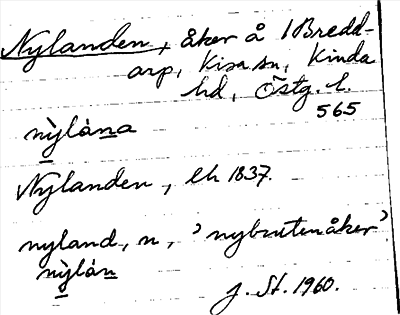 Nylanden, åker å 1 Bredd-
arp, Kisa sn, Kinda
hd, Östg. l.
565
nỳlàna
Nylanden, lh 1837.
nyland, n, 'nybruten åker'
nỳlàn
J. St. 1960.